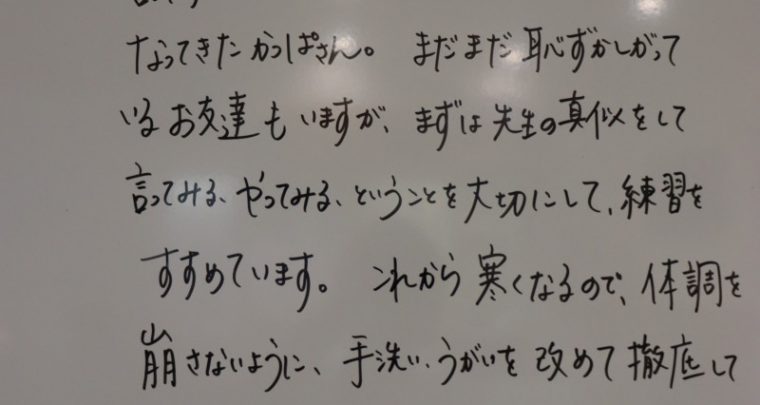 なってきたかっぱさん。 まだまだ恥ずかしがって
いるお友達もいますが、まずは先生の真似をして
言ってみる、やってみる、ということを大切にして、練習を
すすめています。 これから寒くなるので、体調を
崩さないように、手洗い、うがいを改めて徹底して